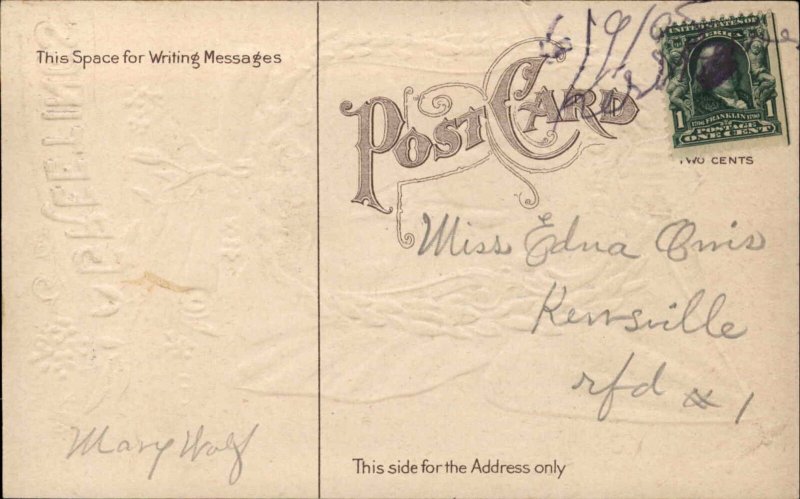 This Space for Writing Messages
POST CARD
UNITED STATES OF
AMERICA
1 1706 FRANKLIN 1790 1
POSTAGE
ONE CENT
TWO CENTS
Miss Edna
rfd # 1
Mary Wolf
This side for the Address only
GREETINGS